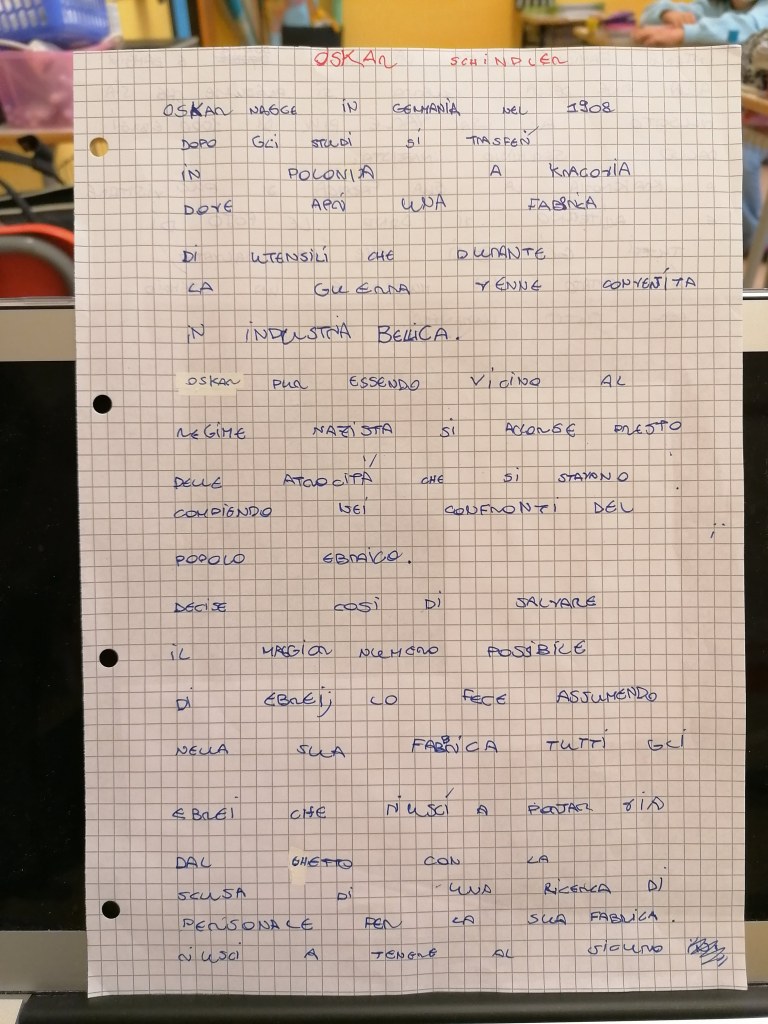 OSKAR SCHINDLER
OSKAR NASCE IN GERMANIA NEL 1908
DOPO GLI STUDI SI TRASFERÍ
IN POLONIA A KRACOVIA
DOVE APRÍ UNA FABRICA
DI UTENSILI CHE DURANTE
LA GUERRA VENNE CONVERÍTA
IN INDUSTRIA BELLICA.
OSKAR PUR ESSENDO VICINO AL
REGIME NAZISTA SI ACCORSE PRESTO
DELLE ATROCITÀ CHE SI STAVANO
COMPIENDO NEI CONFRONTI DEL
POPOLO EBRAICO.
DECISE COSÌ DI SALVARE
IL MAGGIOR NUMERO POSSIBILE
DI EBREI; LO FECE ASSUMENDO
NELLA SUA FABRICA TUTTI GLI
EBREI CHE RIUSCÍ A PORTAR VIA
DAL GHETTO CON LA
SCUSA DI UNA RICERCA DI
PERSONALE PER LA SUA FABRICA.
RIUSCI A TENERE AL SICURO